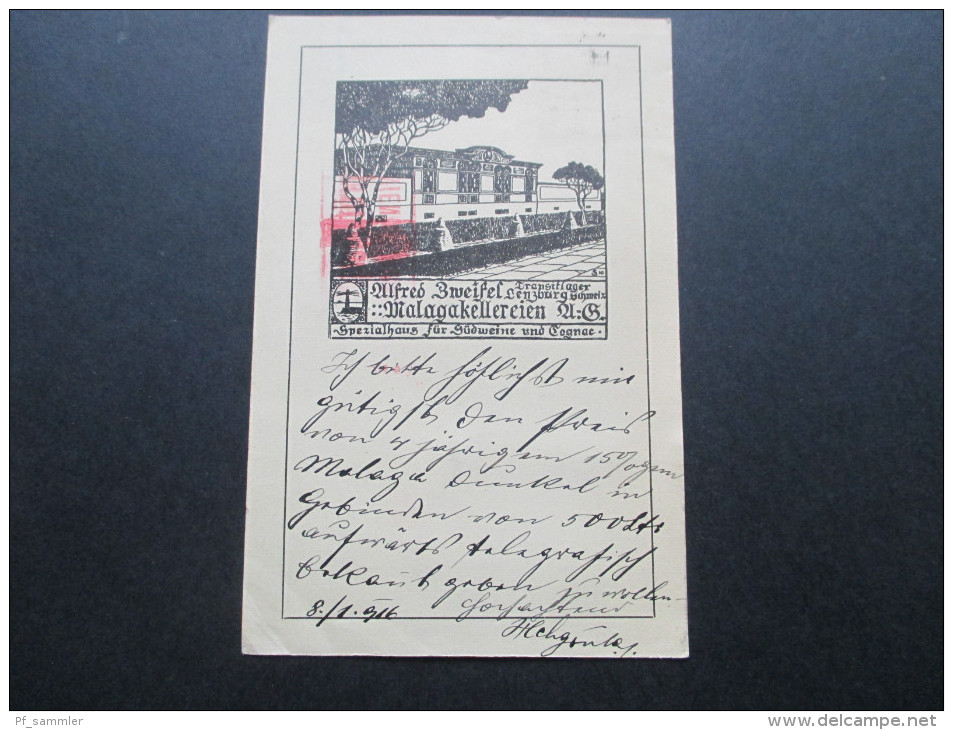 Alfred Zweifel Transitlager
Lenzburg Schweiz
::Malagakellereien A.-G.
·Spezialhaus für Südweine und Cognac·
Ich bitte höflichst mir
gütigst den Preis
von 4 jährigem 15%gem
Malaga Dunkel in
Gebinden von 500 Ltr
aufwärts telegrafisch
bekannt geben zu wollen
8./1. 916 Hochachtend
Pf_sammler
www.delcampe.net